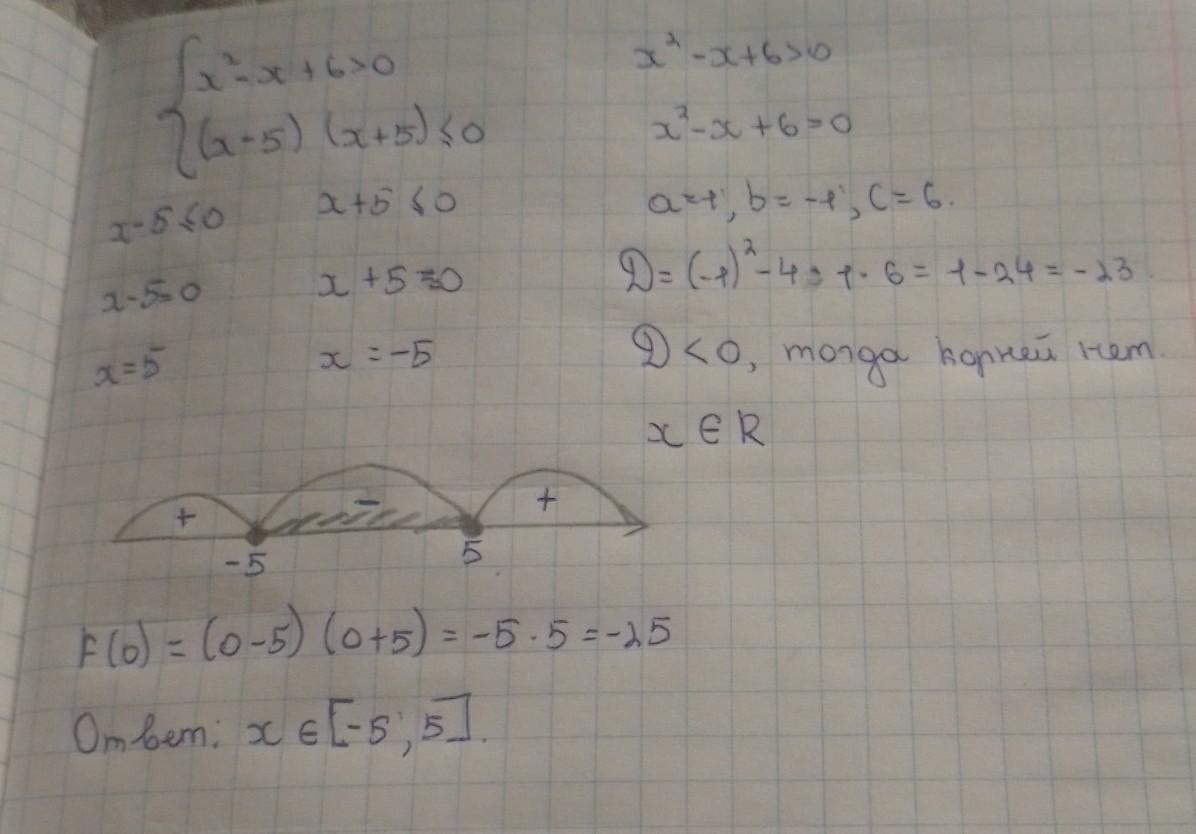 {x² - x + 6 > 0
{(x-5) (x+5) ≤ 0
x-5 ≤ 0    x+5 ≤ 0
x-5=0    x+5=0
x=5    x = -5
x² - x + 6 > 0
x² - x + 6 = 0
a=1; b = -1; c = 6.
D = (-1)² - 4 · 1 · 6 = 1 - 24 = -23.
D < 0, тогда корней нет.
x ∈ R
+ - +
-5 5
F(0) = (0-5) (0+5) = -5 · 5 = -25
Ответ: x ∈ [-5; 5].